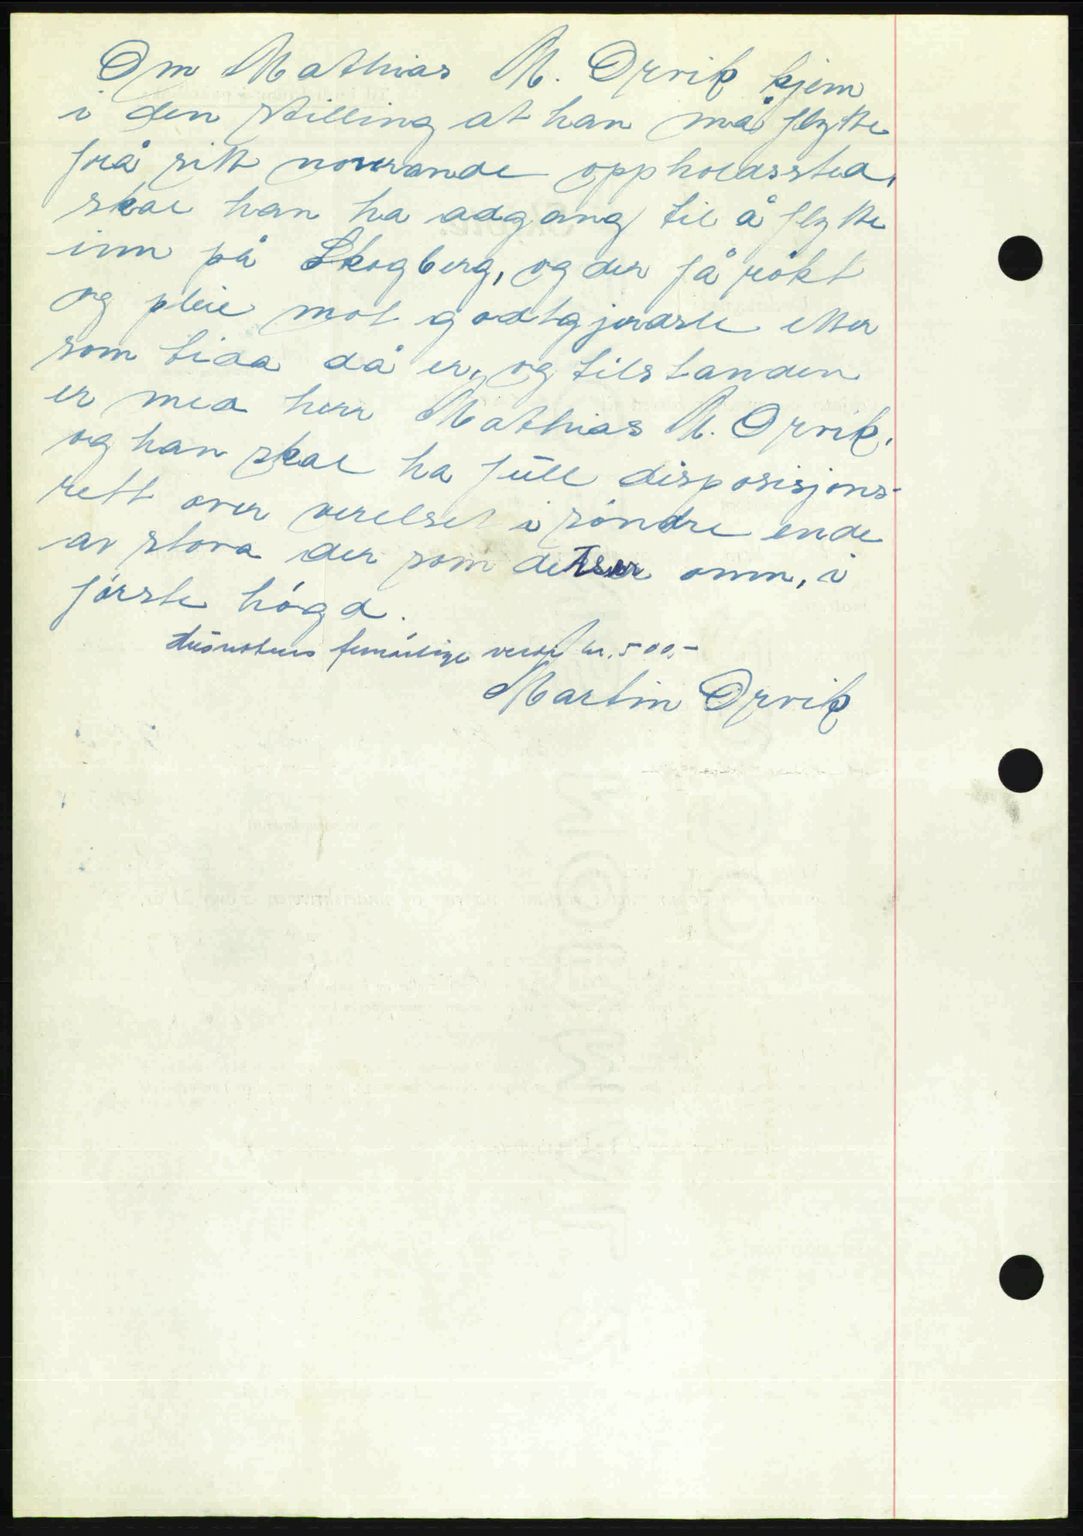 Om Mathias M. Orvik kjem
i den stilling at han må flytte
frå sitt noverande oppholdssted,
skal han ha adgang til å flytte
inn på Skogberg, og der få røkt
og pleie mot godtgjerdsle etter
som tida då er, og tilstanden
er med herr Mathias M. Orvik,
og han skal ha full disposisjons-
rett over verelset i søndre ende
av stova der som det er omn, i
første høgd.
femårlige verdi kr. 500,-
Martin Orvik